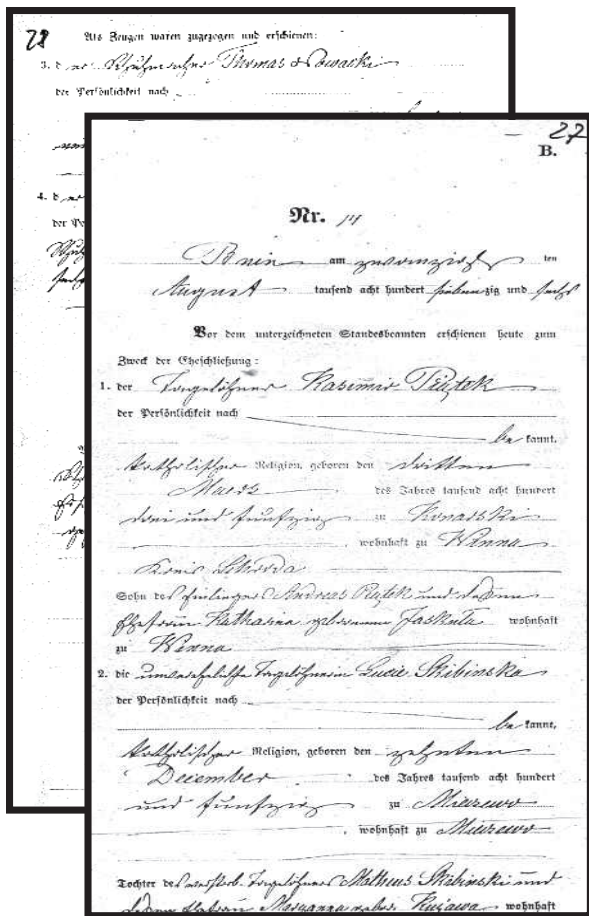 28
Als Zeugen waren zugezogen und erschienen:
3. der Schuhmacher Thomas Nowacki
der Persönlichkeit nach
4. der
27
B.
Nr. 14
Bnin am zwanzigsten
August tausend acht hundert siebenzig und sechs
Vor dem unterzeichneten Standesbeamten erschienen heute zum
Zweck der Eheschließung:
1. der Tagelöhner Kasimir Piątek
der Persönlichkeit nach
bekannt,
katholischer Religion, geboren den dritten
Maerz des Jahres tausend acht hundert
drei und funfzig zu Konarski
, wohnhaft zu Wanna
Kreis Schroda
Sohn des Einliegers Andreas Piątek und dessen
Ehefrau Katharina geborenen Jaskuła wohnhaft
zu Wanna
2. die unverehelichte Tagelöhnerin Lucie Skibinska
der Persönlichkeit nach
bekannt,
katholischer Religion, geboren den zehnten
December des Jahres tausend acht hundert
und funfzig zu Mieczewo
, wohnhaft zu Mieczewo
Tochter des verstorb. Tagelöhners Matheus Skibinski und
dessen Ehefrau Maryanna gebor. Kujawa wohnhaft